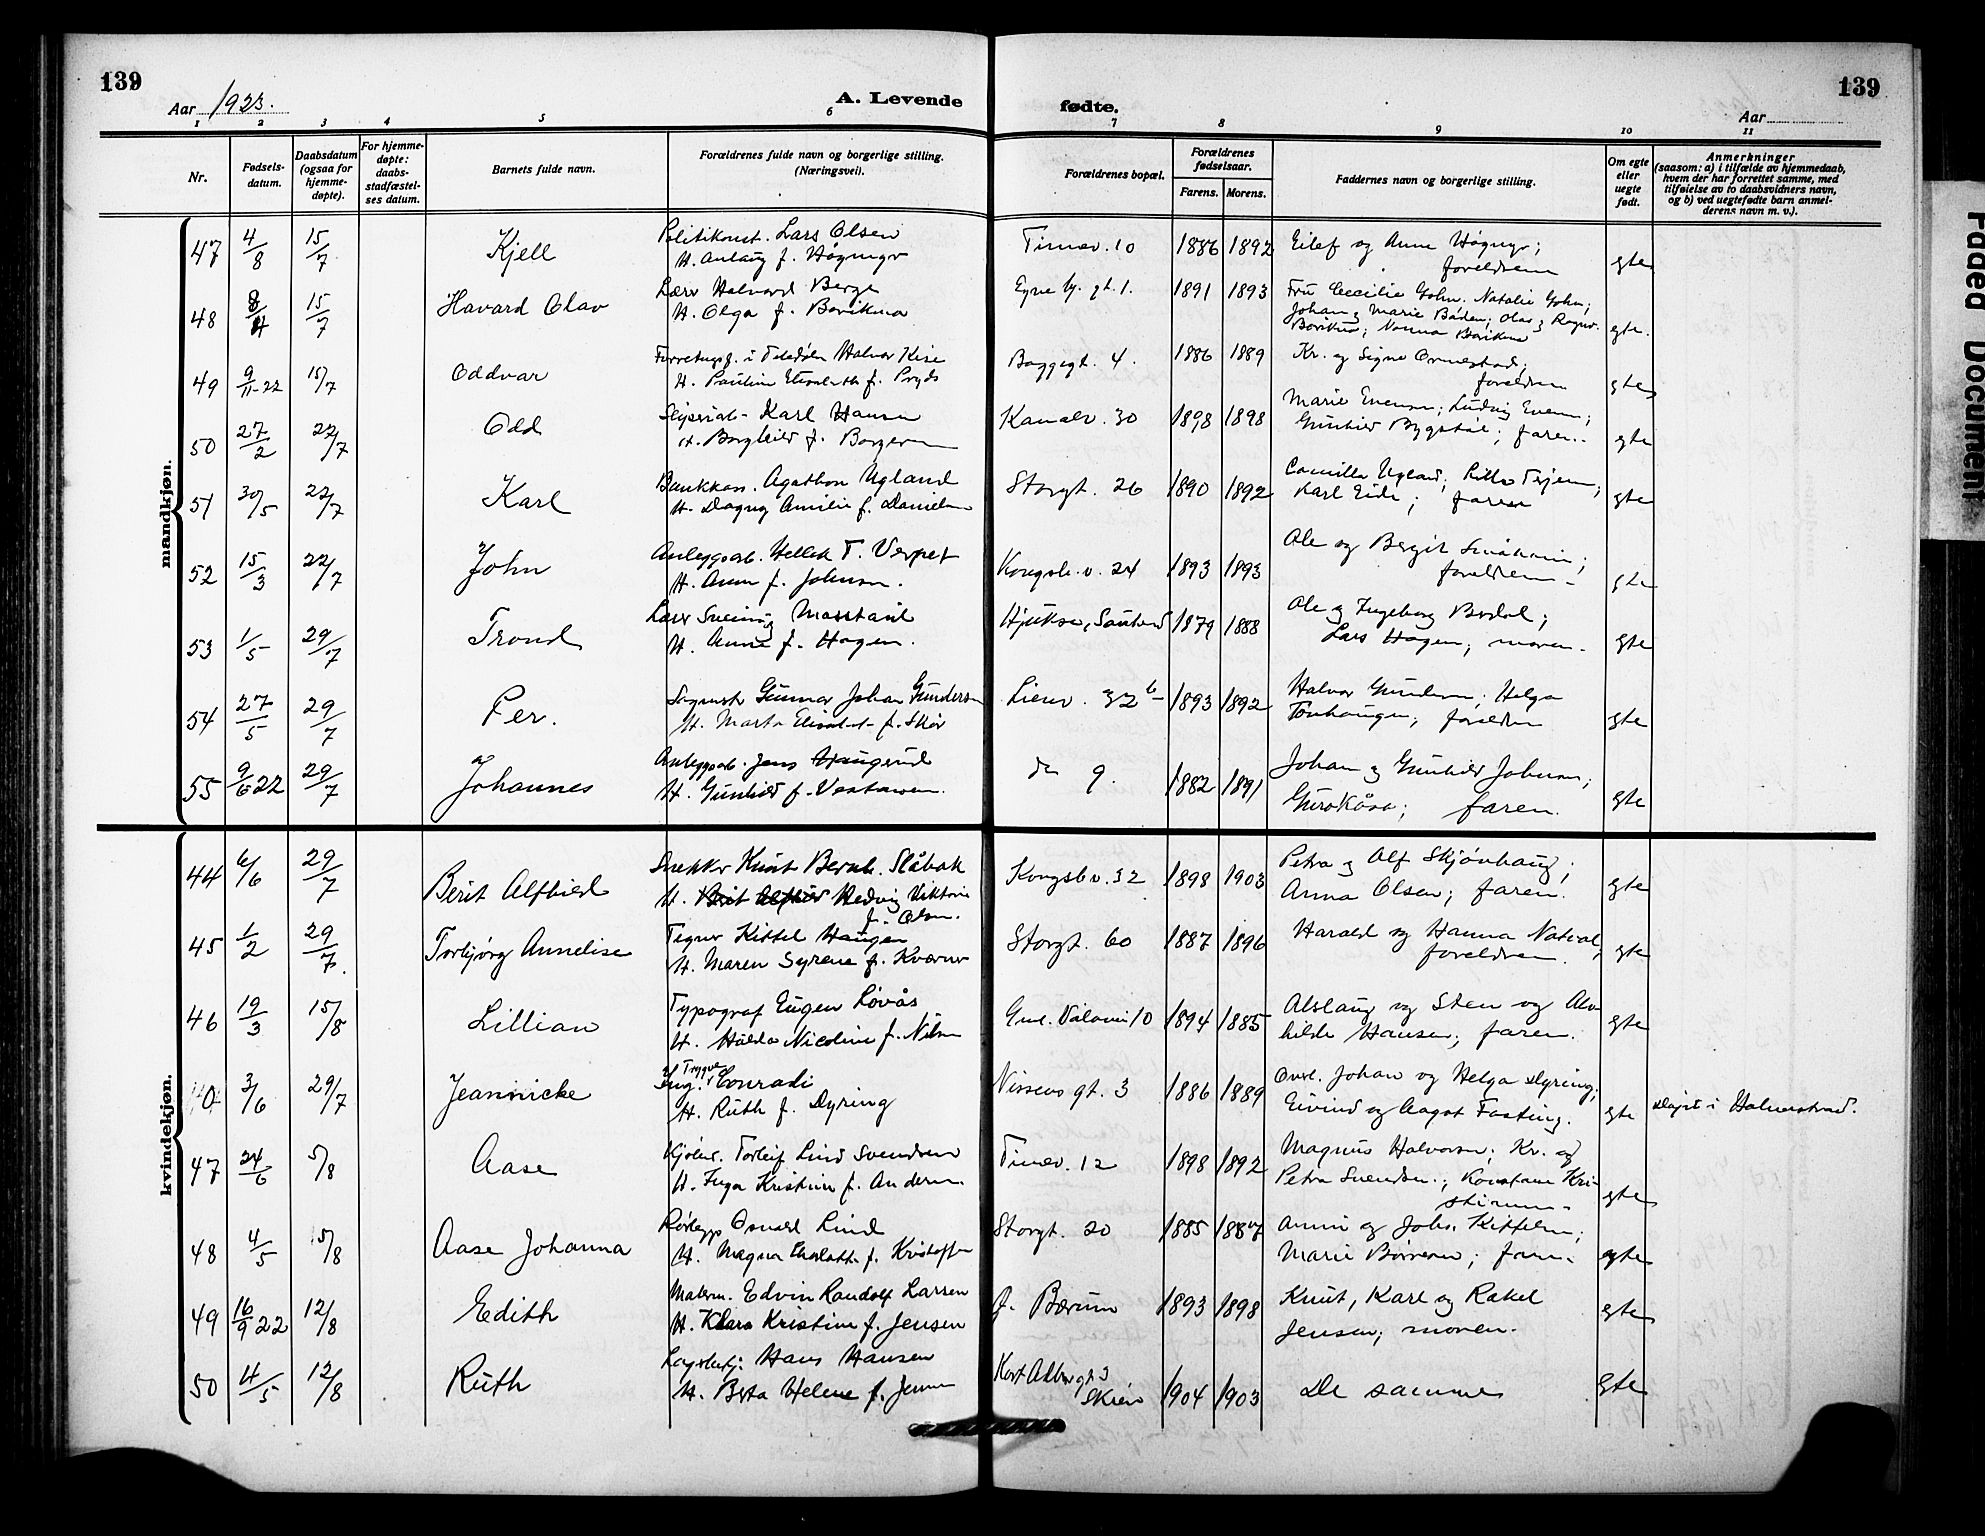 139
139
Aar 1923.
A. Levende
fødte.
Aar
1 2 3 4 5 6 7 8 9 10 11
Nr.
Fødsels-
datum.
Daabsdatum
(ogsaa for
hjemme-
døpte).
For hjemme-
døpte:
daabs-
stadfæstel-
ses datum.
Barnets fulde navn.
Forældrenes fulde navn og borgerlige stilling.
(Næringsvei).
Forældrenes bopæl.
Forældrenes
fødselsaar.
Farens. Morens.
Faddernes navn og borgerlige stilling.
Om egte
eller
uegte
født.
Anmerkninger
(saasom: a) i tilfælde av hjemmedaab,
hvem der har forrettet samme, med
tilføielse av to daabsvidners navn,
og b) ved uegtefødte barn anmel-
derens navn m. v.).
mandkjøn.
47 4/8 15/7 Kjell
Politikonst. Lars Olsen
H. Aslaug f.
Timev. 10 1886 1892
Eilef og Anne
foreldrene
gte
48 8/4 15/7 Havard Olav
Lærer Halvard Berge
H. Olga f. Borikma
1891 1893
Fru Cecilie Natalie
Johan og Marie Olav og
gte.
49 9/11-22 15/7 Oddvar
Halvor Kise
H. Pauline Elisabeth f. Pryds
Baggegt. 4. 1886 1889
Kr. og Signe Ormestad;
foreldrene
gte
50 27/2 22/7 Odd
Karl Hansen
H. Borghild f. Borgersen
Kanalv. 30 1898 1898
Marie Evensen; Ludvig Evensen;
Gunhild Bygstøl; faren.
gte
51 30/5 22/7 Karl
Bankkass. Agathon Ugland
H. Dagny Amilie f. Danielsen
Storgt. 26 1890 1892
Camilla Ugland;
Karl Eide; faren
gte
52 15/3 22/7 John
Anleggsarb. Hellek T. Verpet
H. Anne f. Johnsen.
Kongsb.v. 24 1893 1893
Ole og Bergit
foreldrene
gte
53 1/5 29/7 Trond
Lærer Sveinung Marstand
H. Anne f. Hagen.
Hjukse, Sauherad 1879 1888
Ole og Ingeborg Bordal;
Lars Hagen; moren.
gte
54 27/5 29/7 Per.
Gunnar Johan Gundersen
H. Marta Elisabet f. Skår
Lienv. 32 b 1893 1892
Halvor Gundersen; Helga
Tonhaugen; foreldrene
gte
55 9/6 22 29/7 Johannes
Anleggsarb. Jens Haugerud
H. Gunhild f.
do 9. 1882 1891
Johan og Gunhild Johnsen;
Guro Kåsa; faren.
gte
kvindekjøn.
44 6/6 29/7 Berit Alfhild
Snekker Knut Bernh. Slåbak
H. Berit Alfhild Hedvig Viktoria
f. Olsen.
Kongsbv. 32 1898 1903
Petra og Alf Skjønhaug;
Anna Olsen; faren.
gte
45 1/2 29/7. Torbjørg Annelise
Tegner Kittel Haugen
H. Maren Syrene f. Kværner
Storgt. 60 1887 1896
Harald og Hanna Natvol;
foreldrene.
gte
46 19/3 15/8 Lillian
Typograf Eugen Løvås
H. Hulda Nicoline f. Nilsen
1894 1885
Aslaug og Sten og Alv-
hilde Hansen; faren.
gte
3/6 29/7 Jeannicke
Ing. Trygve Conradi
H. Ruth f. Dyring
Nissens gt. 3 1886 1889
Overl. Johan og Helga Dyring;
Eivind og Aagot Fasting.
gte
døpt i Holmestrand.
47 24/6 5/8 Aase
Torleif Lind Svendsen
H. Inga Kristine f. Andersen.
Timev. 12 1898 1892
Magnus Halvorsen; Kr. og
Petra Svendsen; Konstanse Kri-
stiansen.
gte
48 4/5 5/8 Aase Johanna
Rørlegger Osvald Lind
H. Magna Charlotte f. Kristoffersen
Storgt. 20 1885 1887
Anne og Johs. Kittilsen;
Marie Børresen; faren.
egte
49 16/9 22 12/8 Edith
Malerm. Edvin Randolf Larsen
H. Klara Kristine f. Jensen
f. Bærum 1893 1898
Knut, Karl og Rakel
Jensen; moren.
gte
50 4/5 12/8 Ruth
Hans Hansen
H. Berta Helene f. Jensen
Skien 1904 1903
De samme
gte
Faded Document